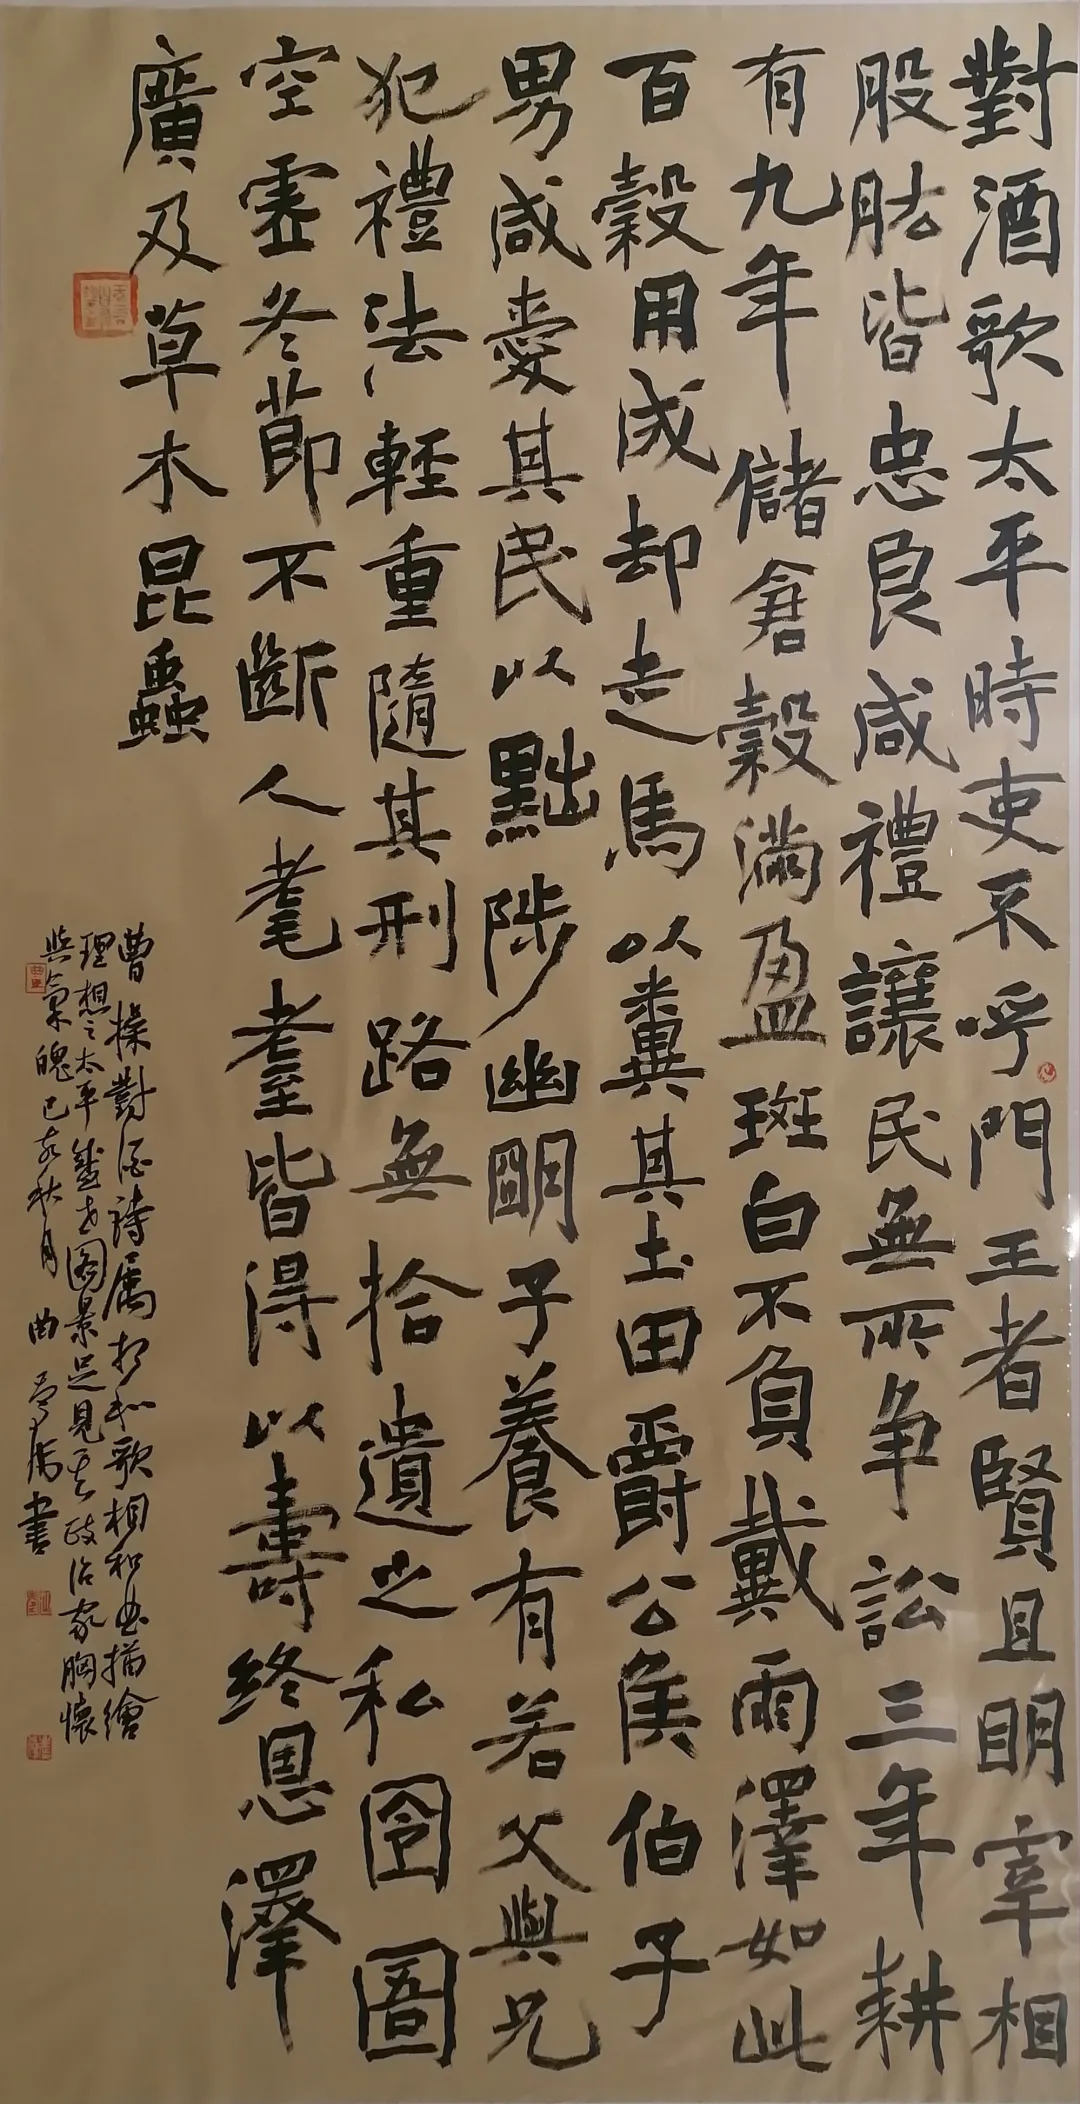 對酒歌太平時吏不呼門王者賢且明宰相
股肱皆忠良咸禮讓民無所争訟三年耕
有九年儲倉穀滿盈斑白不負戴雨澤如此
百穀用成却走馬以糞其土田爵公侯伯子
男咸愛其民以黜陟幽明子養有若父與兄
犯禮法輕重隨其刑路無拾遺之私囹圄
空虛冬節不斷人耄耋皆得以壽終恩澤
廣及草木昆蟲
曹操對酒詩屬相和歌相和曲描繪
理想之太平盛世圖景足見其政治家胸懷
與氣魄己亥秋月曲 書